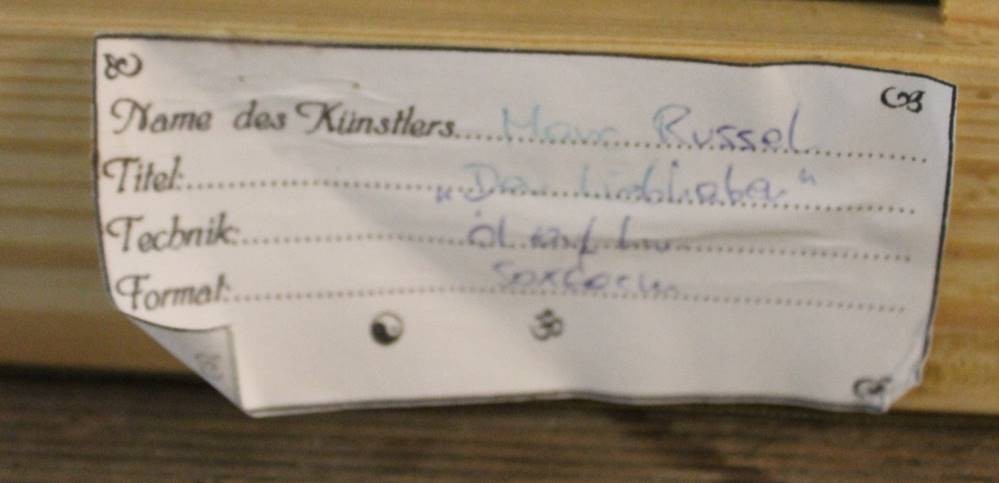 Name des Künstlers.... Marc Russel
Titel:.... "Der Liebhaber"
Technik:.... Öl auf Lw
Format:.... 50x60cm
ॐ